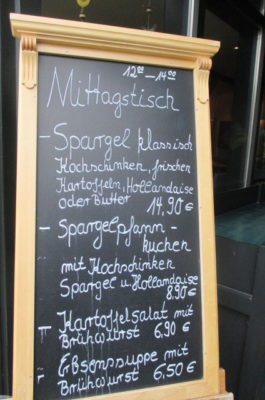 12⁰⁰—14⁰⁰
Mittagstisch
- Spargel klassisch
Kochschinken, frischen
Kartoffeln, Hollandaise
oder Butter 14,90 €
- Spargelpfann-
kuchen
mit Kochschinken
Spargel u Hollandaise
8.90 €
- Kartoffelsalat mit
Brühwurst 6,90 €
- Erbsensuppe mit
Brühwurst 6,50 €